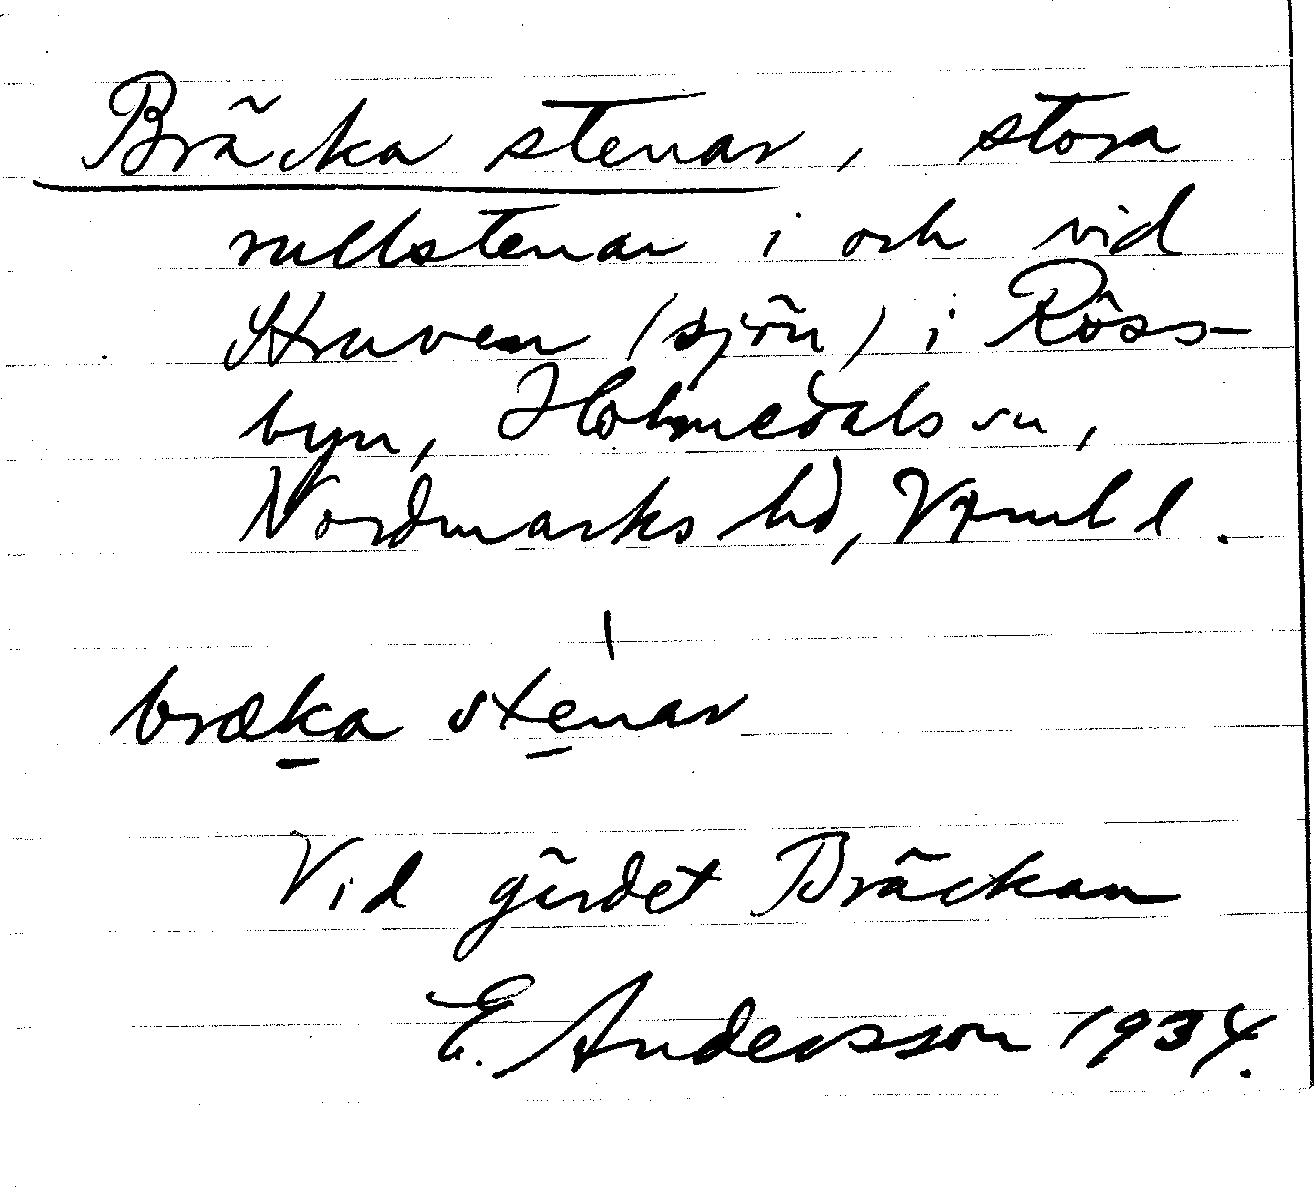 Bräcka stenar, stora
rullstenar i och vid
Struven (sjön) i Röss-
byn, Holmedals sn,
Nordmarks hd, Vrml l.
bræka stenar
Vid gärdet Bräckan
E. Andersson 1934.